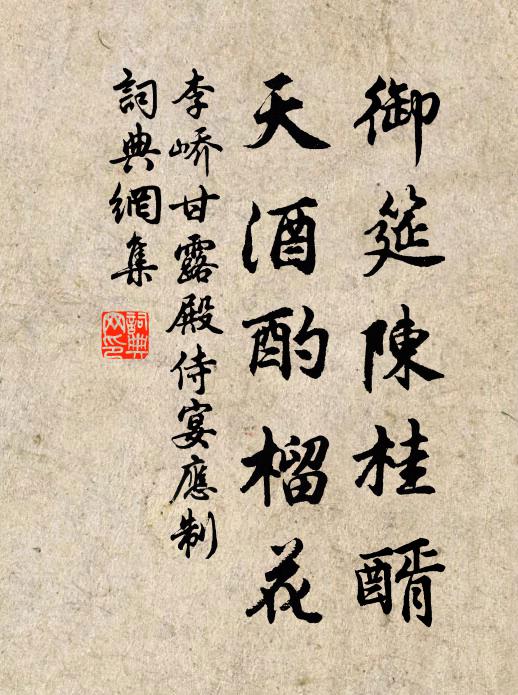 御筵陳桂醑
天酒酌榴花
李嶠甘露殿侍宴應制
詞典網集
詞典
网印